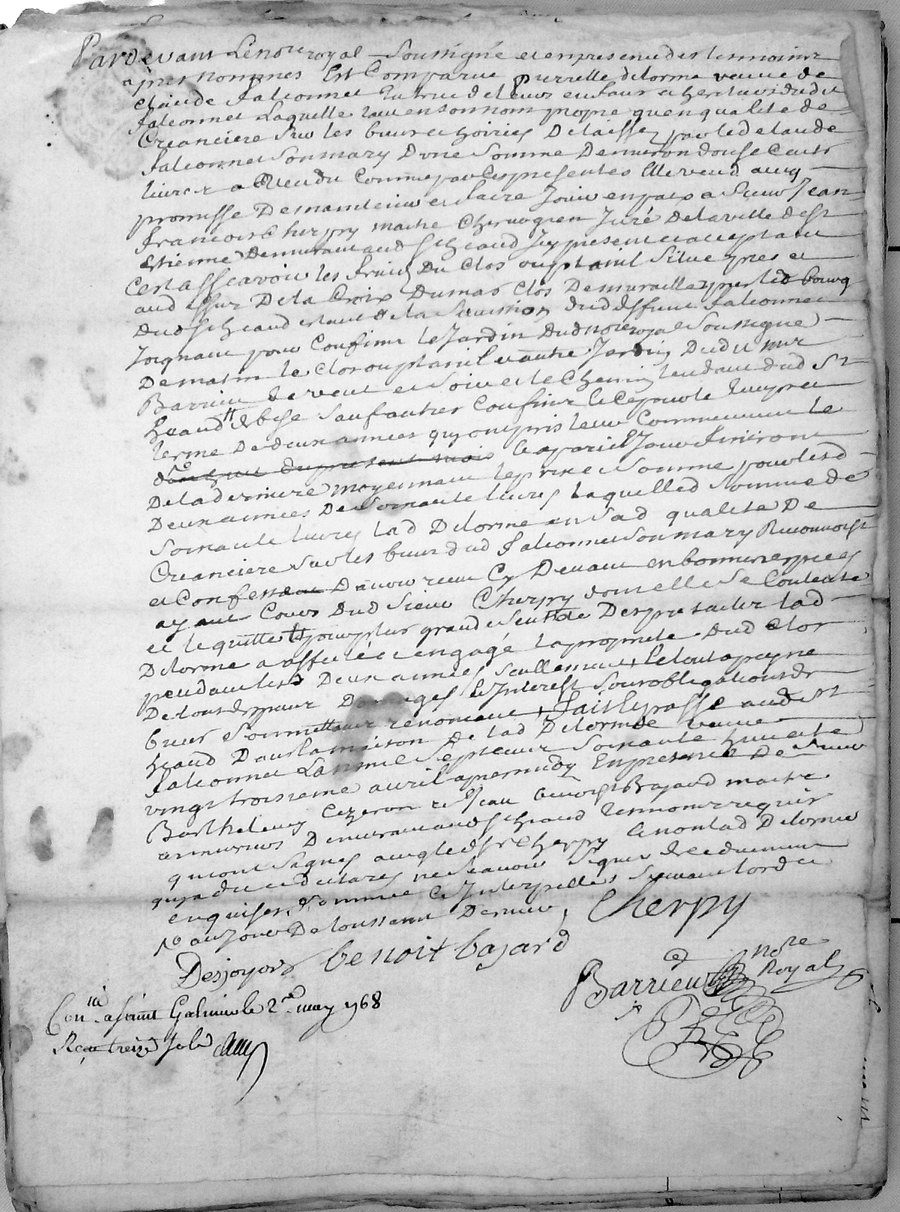 Pardevant Le notre royal Soussigné et en presence des temoins
apres nommes Est Comparue pierrette delorme veuve de
Claude falconnet
falconnet Laquelle en son nom propre qu'en qualité de
Creanciere sur les biens et hoiries Delaisses par led claude
falconnet Son mary D'une Somme D'environ douse Cents
livres a Vendu Comme par Ces presentes Elle vend avec
promesse De maintenir et faire Jouir en paix a Sieur Jean
francois Cherpy maitre Chirurgien Juré De la ville de St
etienne Demeurant aud St heand Icy present et acceptant
C'est assavoir les fruits Du Clos ou plantil Situe pres et
au dessur De la Croix Dumas Clos De murailles pres led bourg
Dud St heand et de la Sucession dud deffunt falconnet
Joignant pour Confins le Jardin Dud notre royal Soussigné
De matin le Clos ou plantil et autre Jardin Dud Sieur
Barrieu De vent et Soir et le Chemin tendant dud St
heand de bise Sauf autres Confins et Ce pour le temps et
terme De deux annees qui ont pris leur Commencement le
du present mois
De la derniere moyennant le prix et Somme pour lesd
Deux annees De Soixante livres Laquelle d Somme de
Soixante livres lad Delorme en Sad qualité De
Creanciere Sur les biens dud falconnet Son mary Reconnoist
et Confesse D'avoir recu Cy Devant en bonnes especes
ayant Cours Dud Sieur Cherpy dont elle Se Contente
et le quitte pour plus grande Seureté De
Delorme a affecté et engagé la propriete dud Clos
pendant lesd Deux annees Seullement, Le tout a peyne
De tous Depens Domages et Interest Sous obligations de
biens Soumissions renonciations, fait et passé aud St
heand Dans la maison De lad Delorme veuve
falconnet L'an mil Sept cent Soixante huit et le
vingt troisieme avril apres midy En presence De Sieur
Barthelemy et Jean Benoist Bajard maitre
armurier Demeurant aud St heand temoins requis
qui ont Signés avec led Sr Cherpy et non lad Delorme
qui a dit et declaré ne Scavoir Signer De ce duement
enquise, Sommée et Interpellée Suivant l'ordce
au Jour De toussaint Dernier, Cherpy
Desjoyaux benoit bajard
Barrieu notre Royal
Con. a saint Galmier le 2e. may 1768
Reçu treize sols